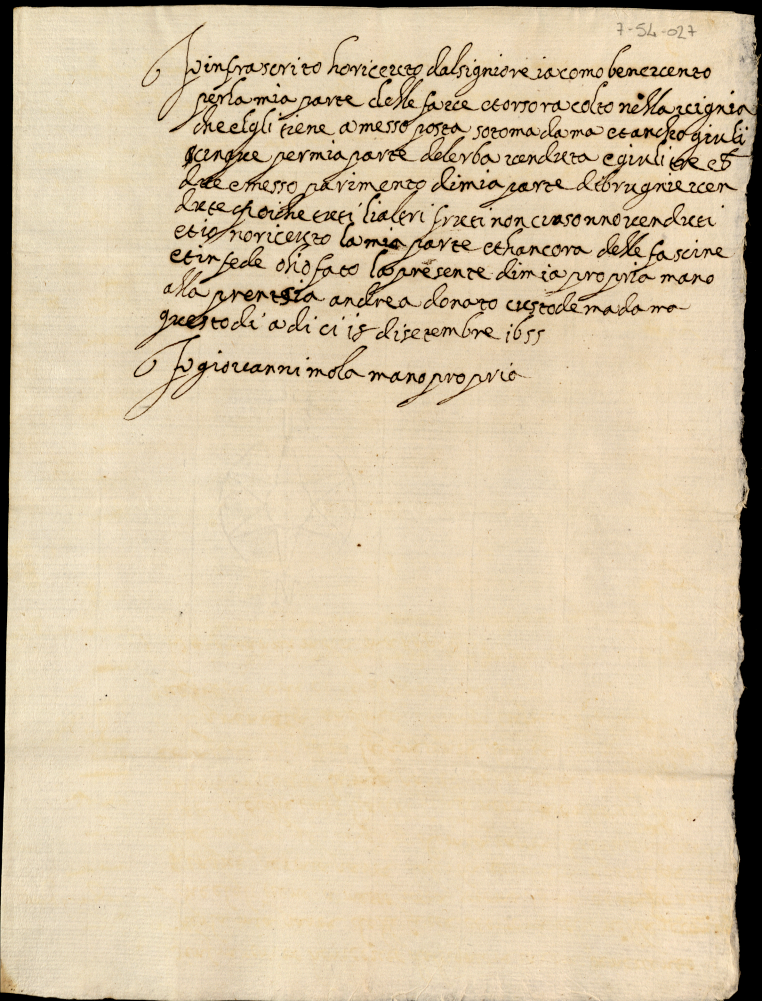 7-54-027
Io infrascrito ho riceuto dal signiore iacomo beneuento
per la mia parte delle faue et orso racolto nella uignia
che elgli tiene a messo posta soto madama et ancho giuli
cinque per mia parte del erba uenduta e giuli tre et
due e messo parimento di mia parte di brugnie uen
dute poi che tuti li altri fruti non ci usonno uenduti
et io no riceuto la mia parte et hancora delle fascine
et in fede o fato la presente di mia propria mano
alla prentsia andrea donato custode madama
questo di a di ci 15 di setembre 1655
Io giouanni mola mano propria